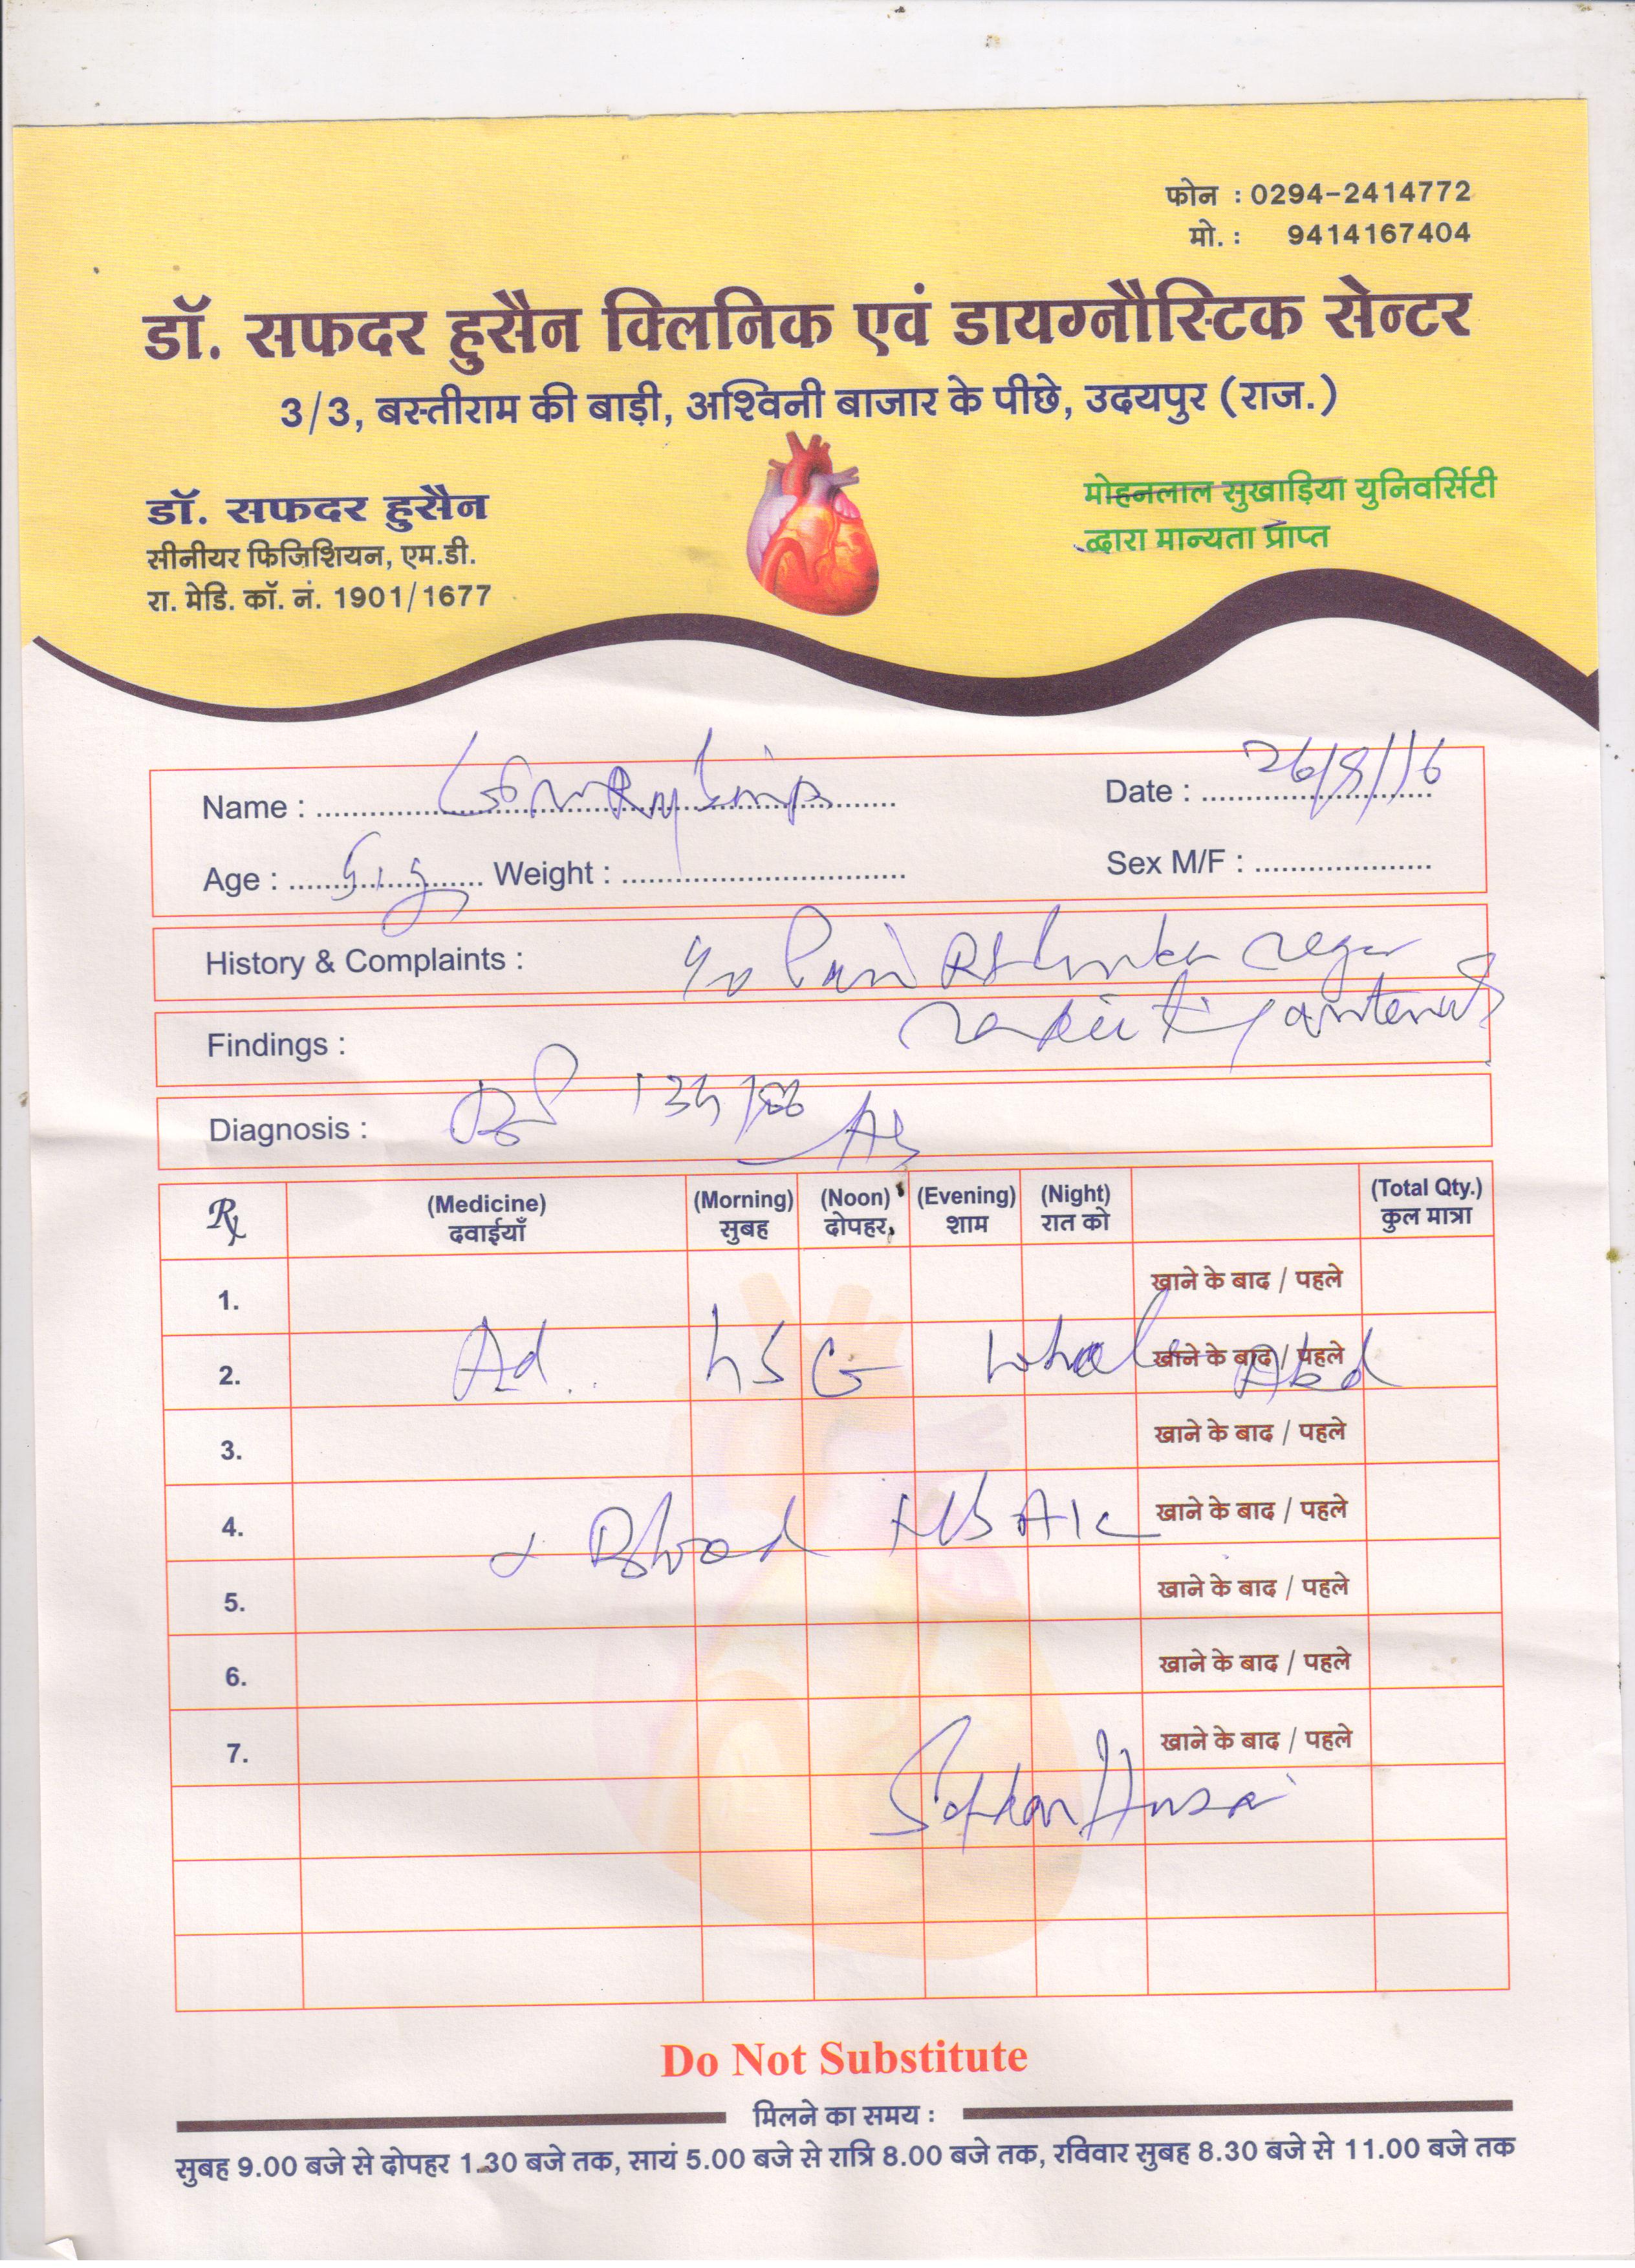 फोन : 0294-2414772
मो. : 9414167404
डॉ. सफदर हुसैन क्लिनिक एवं डायग्नौस्टिक सेन्टर
3/3, बस्तीराम की बाड़ी, अश्विनी बाजार के पीछे, उदयपुर (राज.)
डॉ. सफदर हुसैन
सीनीयर फिजिशियन, एम.डी.
रा. मेडि. कॉ. नं. 1901/1677
मोहनलाल सुखाड़िया युनिवर्सिटी
द्वारा मान्यता प्राप्त
Name : Date : 26/8/16
Age : Weight : Sex M/F :
History & Complaints : Pain
Findings :
Diagnosis :
Rx (Medicine) (Morning) (Noon) (Evening) (Night) (Total Qty.)
दवाईयाँ सुबह दोपहर शाम रात को कुल मात्रा
1. खाने के बाद / पहले
2. Ad. USG Whole Abd खाने के बाद / पहले
3. खाने के बाद / पहले
4. Blood HbA1c खाने के बाद / पहले
5. खाने के बाद / पहले
6. खाने के बाद / पहले
7. खाने के बाद / पहले
Do Not Substitute
मिलने का समय :
सुबह 9.00 बजे से दोपहर 1.30 बजे तक, सायं 5.00 बजे से रात्रि 8.00 बजे तक, रविवार सुबह 8.30 बजे से 11.00 बजे तक